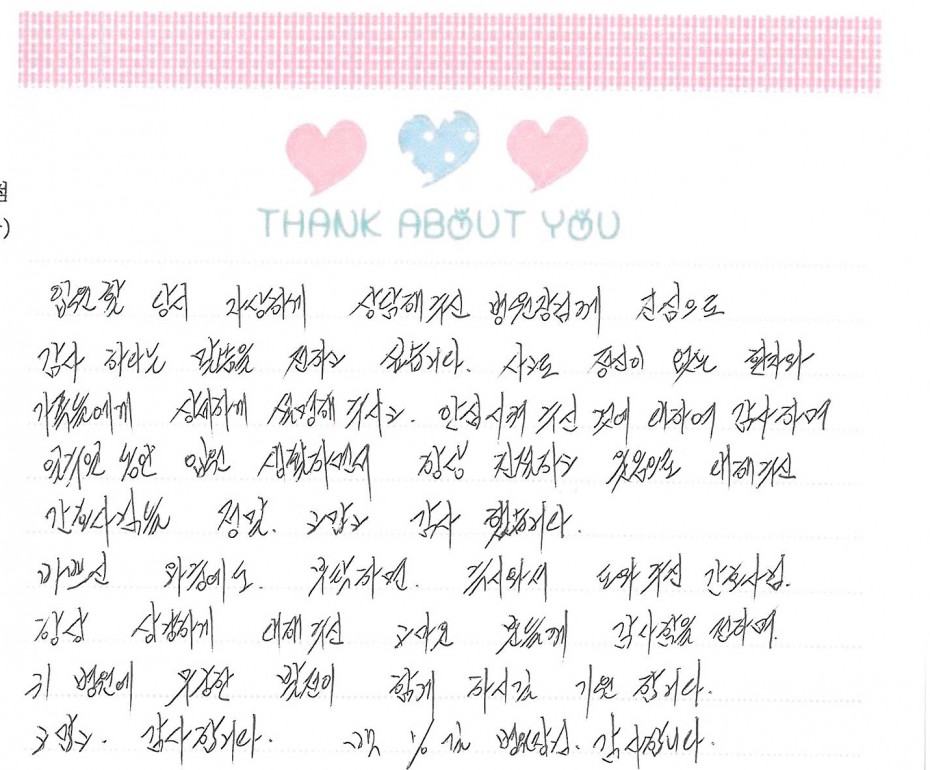 원
THANK ABOUT YOU
입원할 당시 자상하게 상담해주신 병원장님께 진심으로
감사 하다는 말씀을 전하고 싶습니다. 사고로 정신이 없는 환자와
가족들에게 상세하게 설명해 주시고. 안심시켜 주신 것에 대하여 감사하며
일주일 동안 입원 생활하면서 항상 친절하고 웃음으로 대해주신
간호사님들 정말. 고맙고 감사 했습니다.
바쁘신 와중에도. 부탁하면. 즉시와서 도와 주신 간호사님.
항상 상냥하게 대해 주신 고마운 분들께 감사함을 전하며.
귀 병원에 무궁한 발전이 함께 하시길 기원 합니다.
고맙고. 감사합니다. 병원장님. 감사합니다.